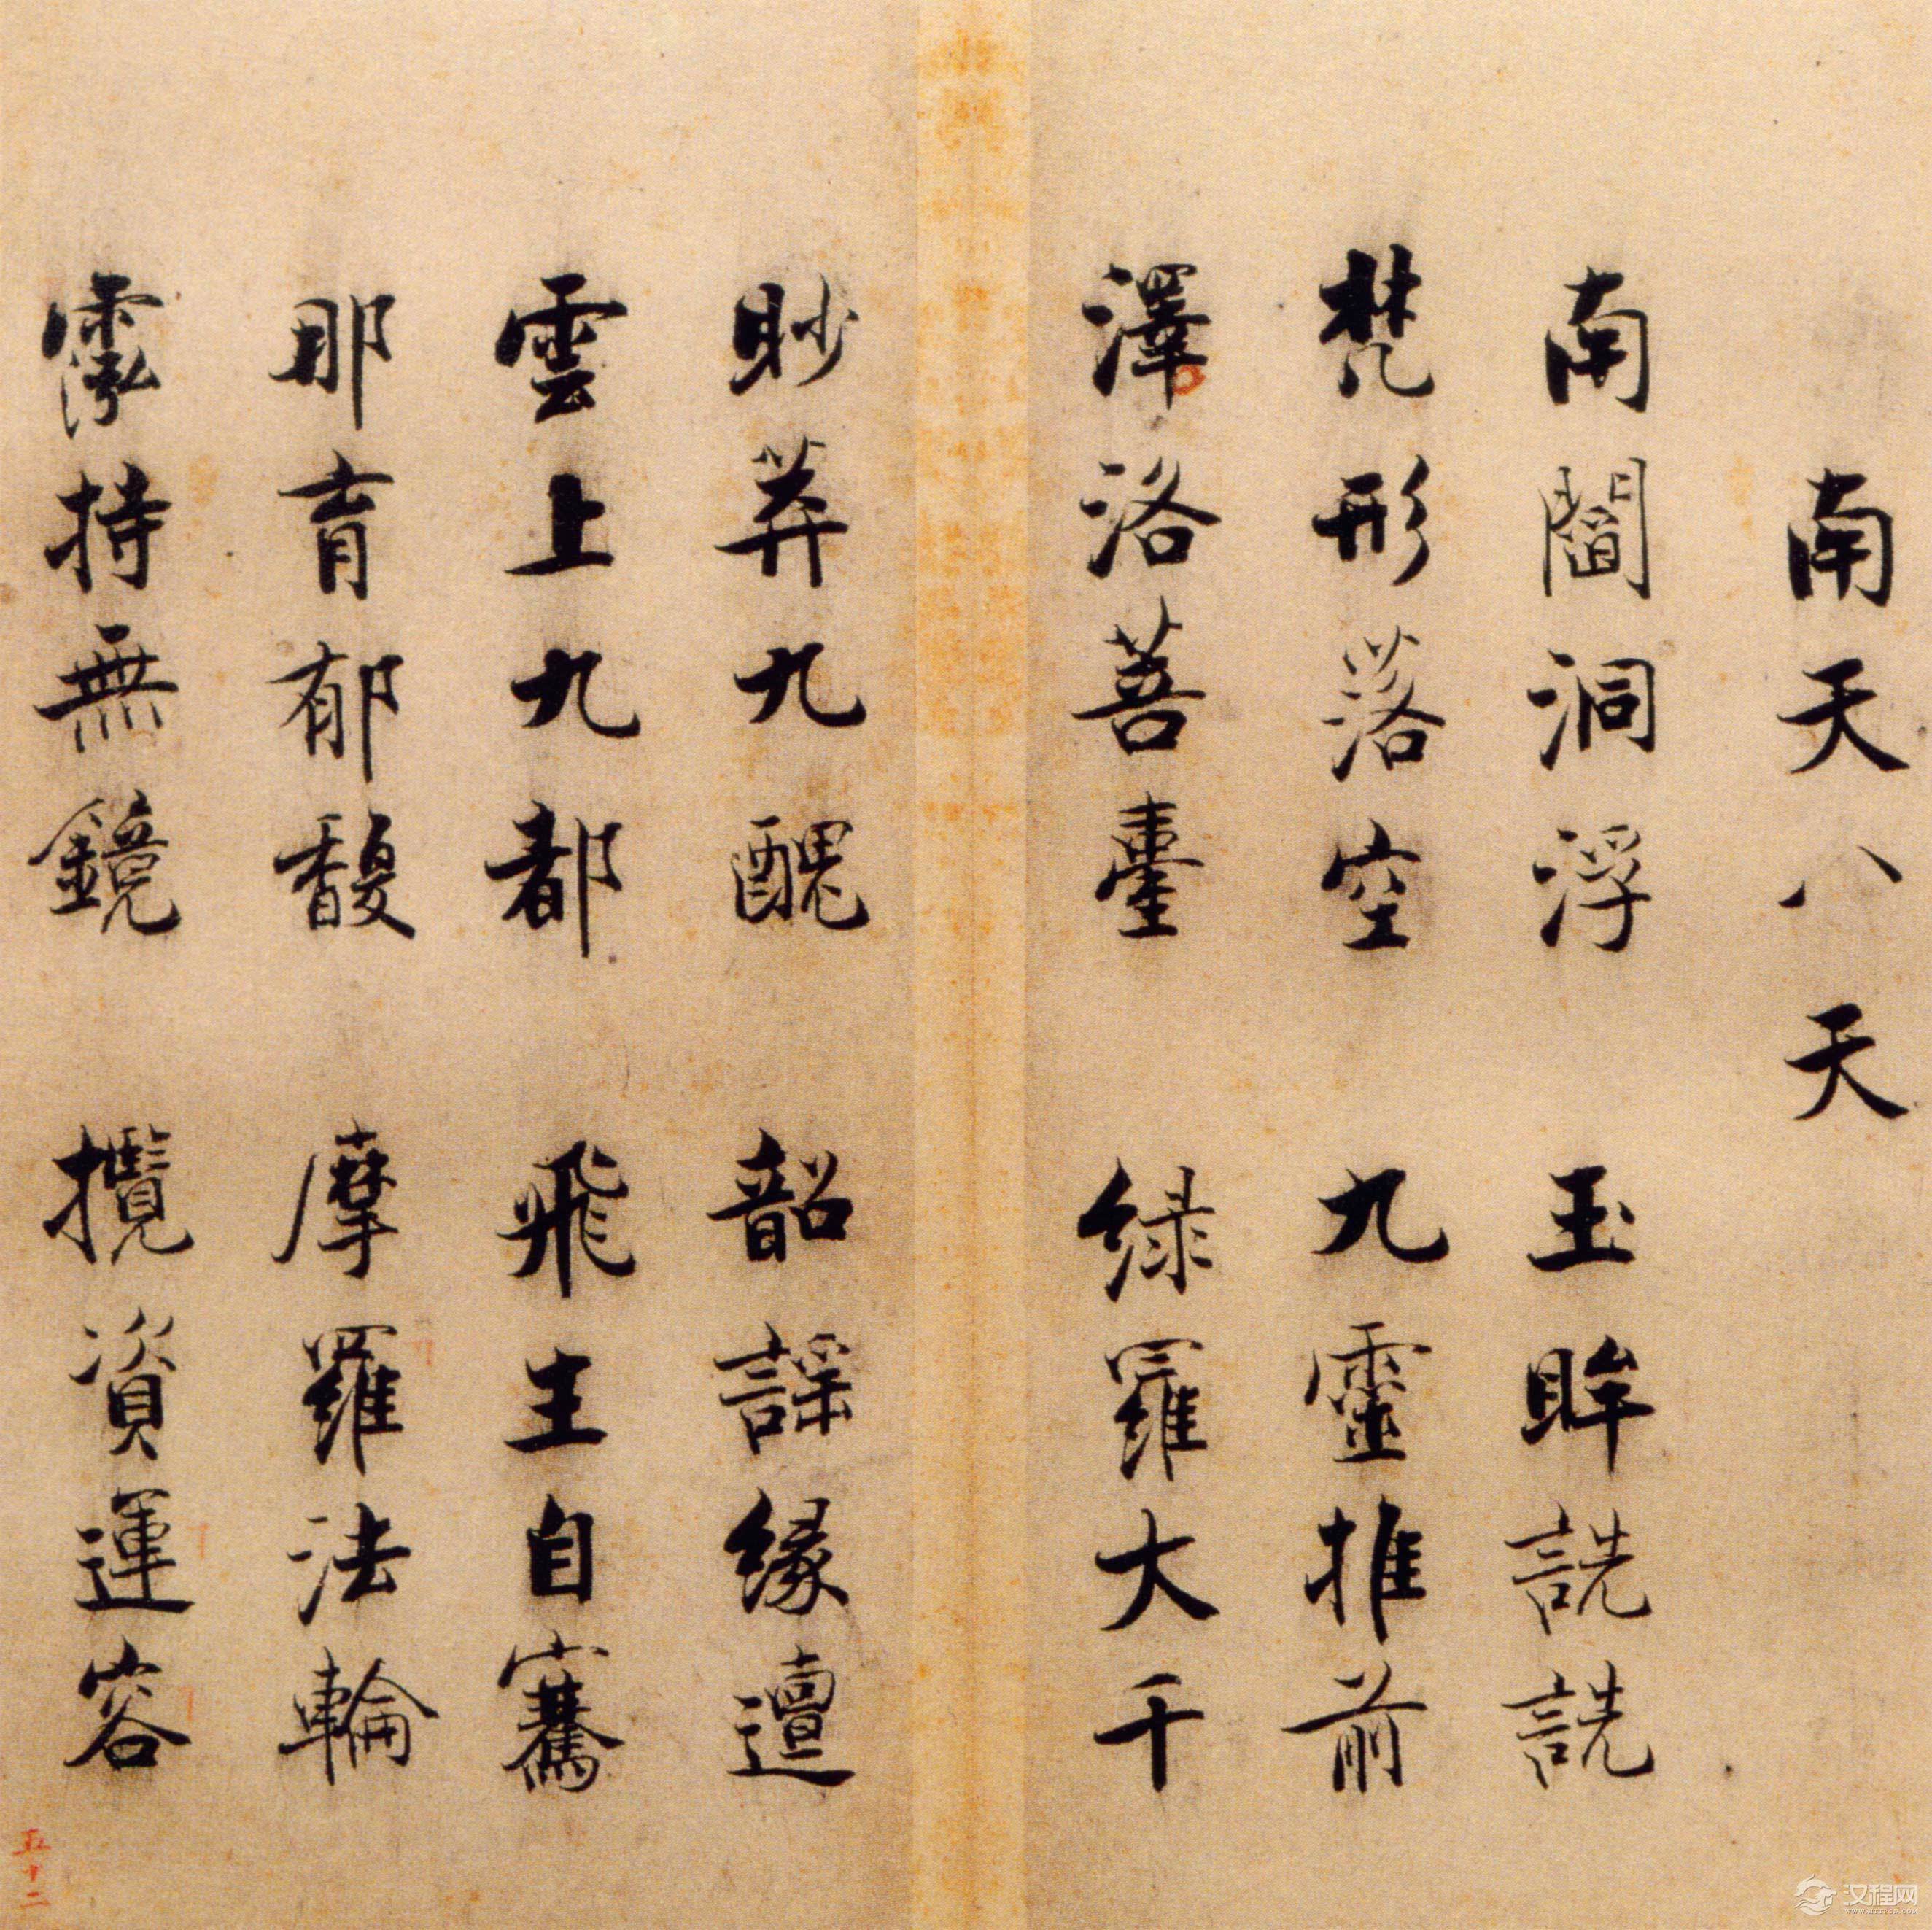 南天八天
南閻洞浮　玉眸詵詵
梵形落空　九靈推前
澤洛菩臺　綠羅大千
眇莽九醜　韶謠緣邅
雲上九都　飛主自騫
那育郁馥　摩羅法輪
霐持無鏡　攬資運容
五十二
汉程网
www.httpcn.com